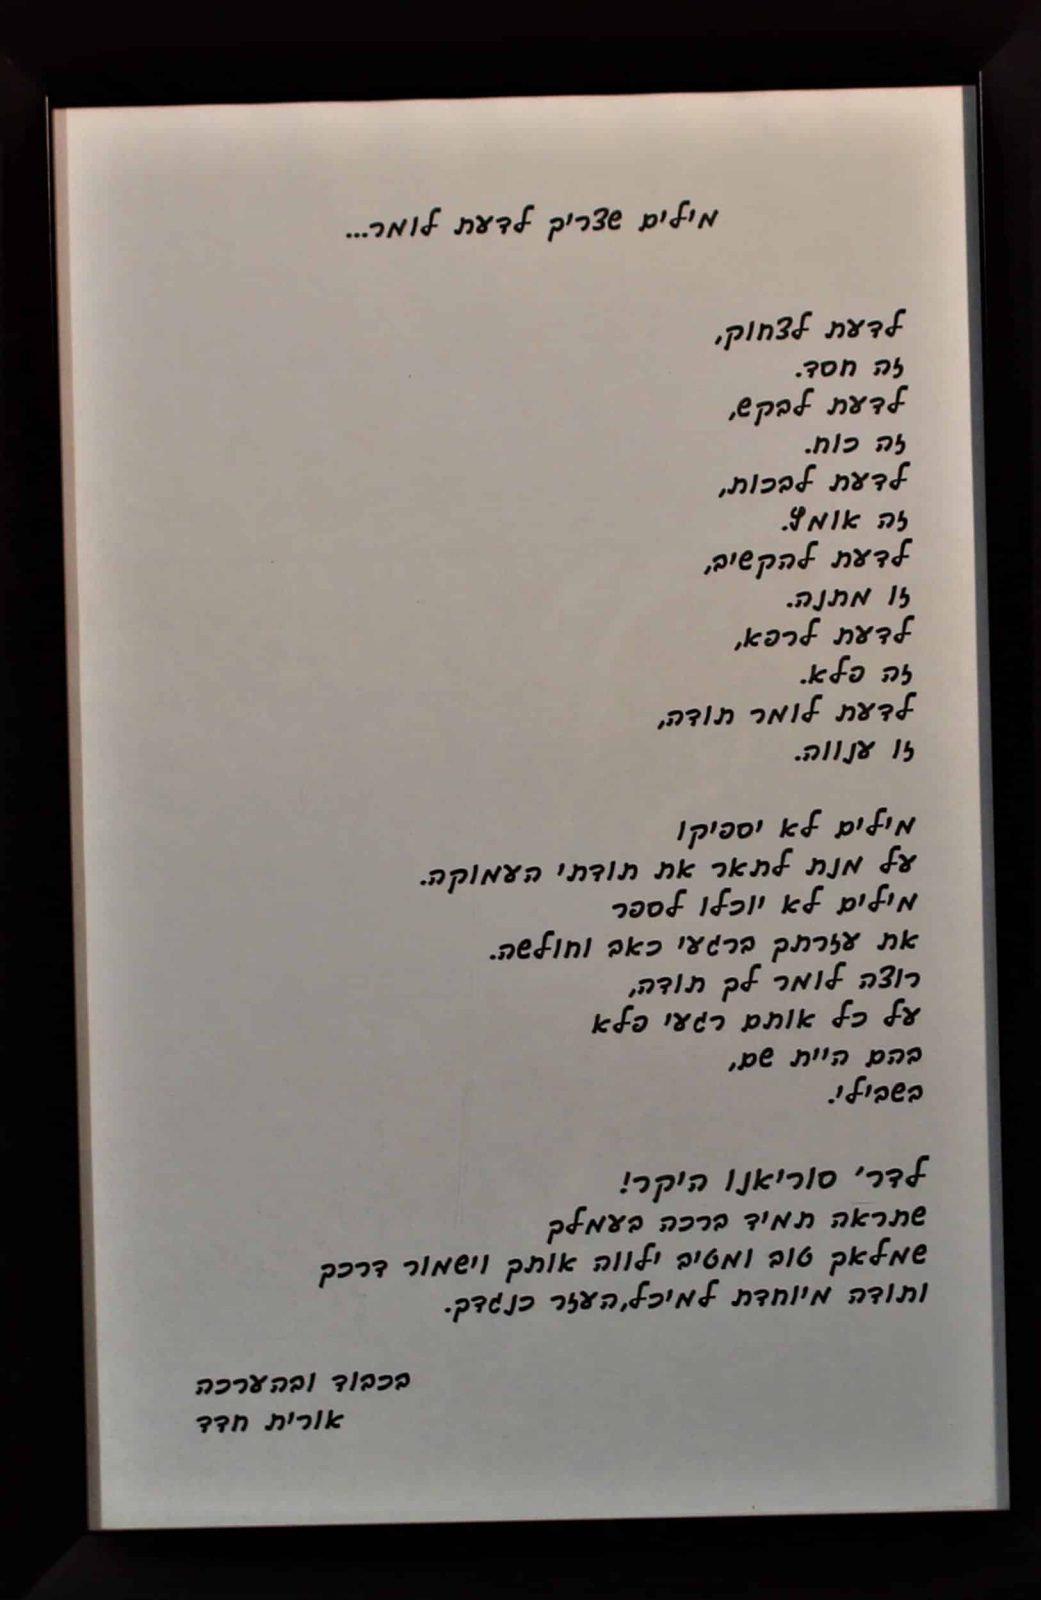 מילים שצריך לדעת לומר...
לדעת לצחוק,
זה חסד.
לדעת לבקש,
זה כוח.
לדעת לבכות,
זה אומץ.
לדעת להקשיב,
זו מתנה.
לדעת לרפא,
זה פלא.
לדעת לומר תודה,
זו ענווה.
מילים לא יספיקו
על מנת לתאר את תודתי העמוקה.
מילים לא יוכלו לספר
את עזרתך ברגעי כאב וחולשה.
רוצה לומר לך תודה,
על כל אותם רגעי פלא
בהם היית שם,
בשבילי.
לדר' סוריאנו היקר!
שתראה תמיד ברכה בעמלך
שמלאך טוב ומטיב ילווה אותך וישמור דרכך
ותודה מיוחדת למיכל,העזר כנגדך.
בכבוד ובהערכה
אורית חדד